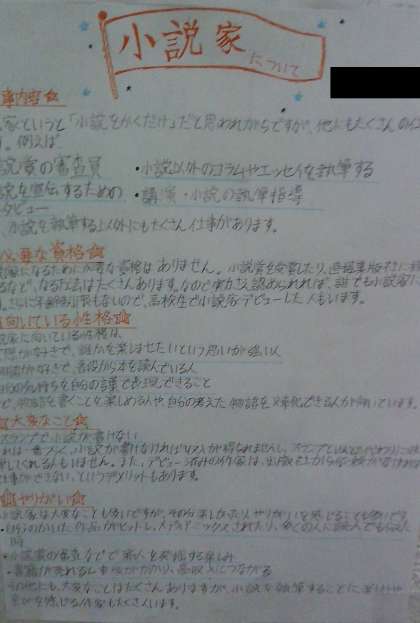 小説家
について
内容☆
家というと「小説をかくだけ」だと思われがちですが、他にもたくさんの
す。例えば
説賞の審査員 ・小説以外のコラムやエッセイを執筆する
説を宣伝するための ・講演・小説の執筆指導
タビュー
小説を執筆する以外にもたくさん仕事があります。
必要な資格☆
家になるために必要な資格はありません。小説賞を受賞したり、
なる方法はたくさんあります。なので実力さえ認められれば、誰でも小説家に
さらに年齢制限もないので、高校生で小説家デビューした人もいます。
向いている性格☆
家に向いている性格は、
好きで、誰かを楽しませたいという思いが強い人
好きで、普段から本を読んでいる人
気持ちを自らの言葉で表現できること
物語を書くことを楽しめる人や、自らの考えた物語を文章化できる人が向いています。
大変なこと☆
スランプで小説が書けない
小説が書けなければ収入が得られませんし、スランプ
してくれる人もいません。また、デビュー済みの作家は、出版社から
できない、というデメリットもあります。
やりがい☆
小説家は大変なことも多いですが、その分楽しかったりやりがいを感じることも
自らのかいた作品がヒットし、メディアミックスされたり、多くの人に読んでもらえた
時
・小説賞の審査などで新人を発掘する楽しみ
・書籍が売れるし 高収入につながる
その他にも、大変なことはたくさんありますが、小説を執筆することに
を感じる作家もたくさんいます。